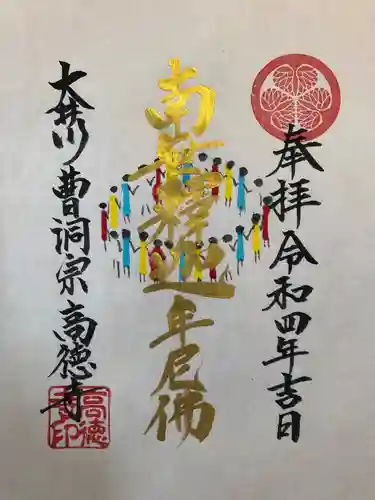 奉拝 令和四年吉日
南無釋迦牟尼佛
大井川 曹洞宗 高徳寺
高徳寺印